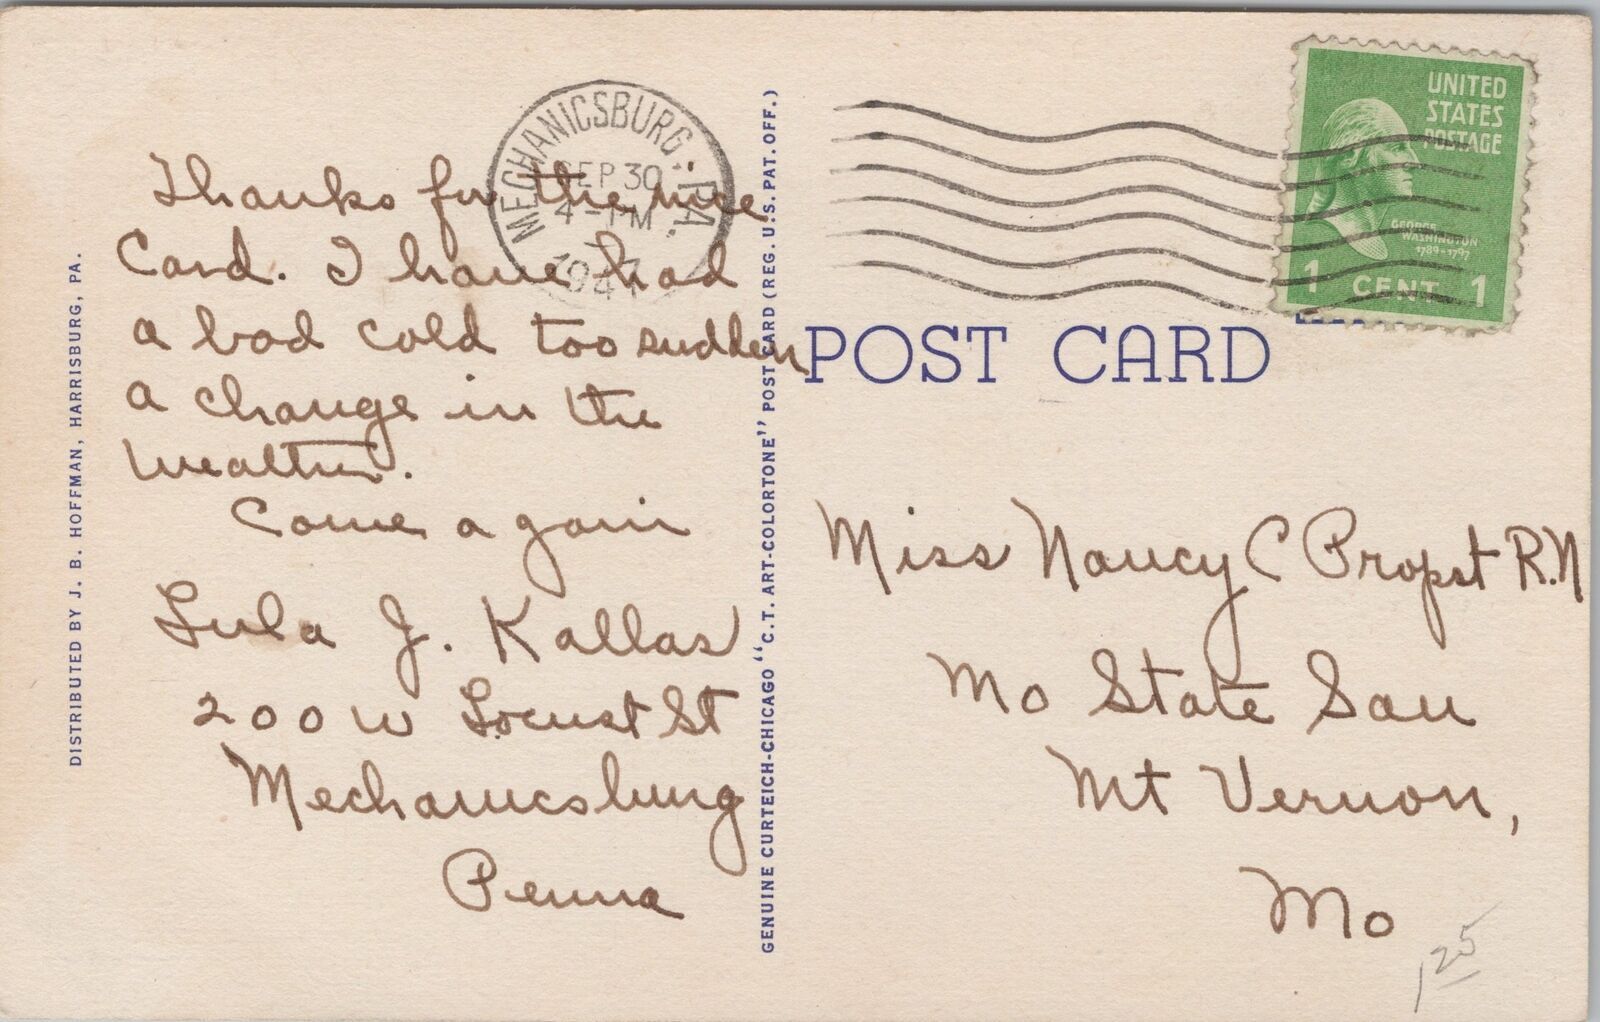 DISTRIBUTED BY J. B. HOFFMAN, HARRISBURG, PA.
MECHANICSBURG PA.
SEP 30
4-PM
1947
Thanks for the nice
Card. I have had
a bad cold too sudden
a change in the
weather.
Come again
Lula J. Kallas
200 W Locust St
Mechanicsburg
Penna
GENUINE CURTEICH-CHICAGO "C.T. ART-COLORTONE" POST CARD (REG. U.S. PAT. OFF.)
UNITED
STATES
POSTAGE
GEORGE
WASHINGTON
1789-1797
1 CENT 1
POST CARD
Miss Nancy C Propst R.N
Mo State San
Mt Vernon,
Mo
125